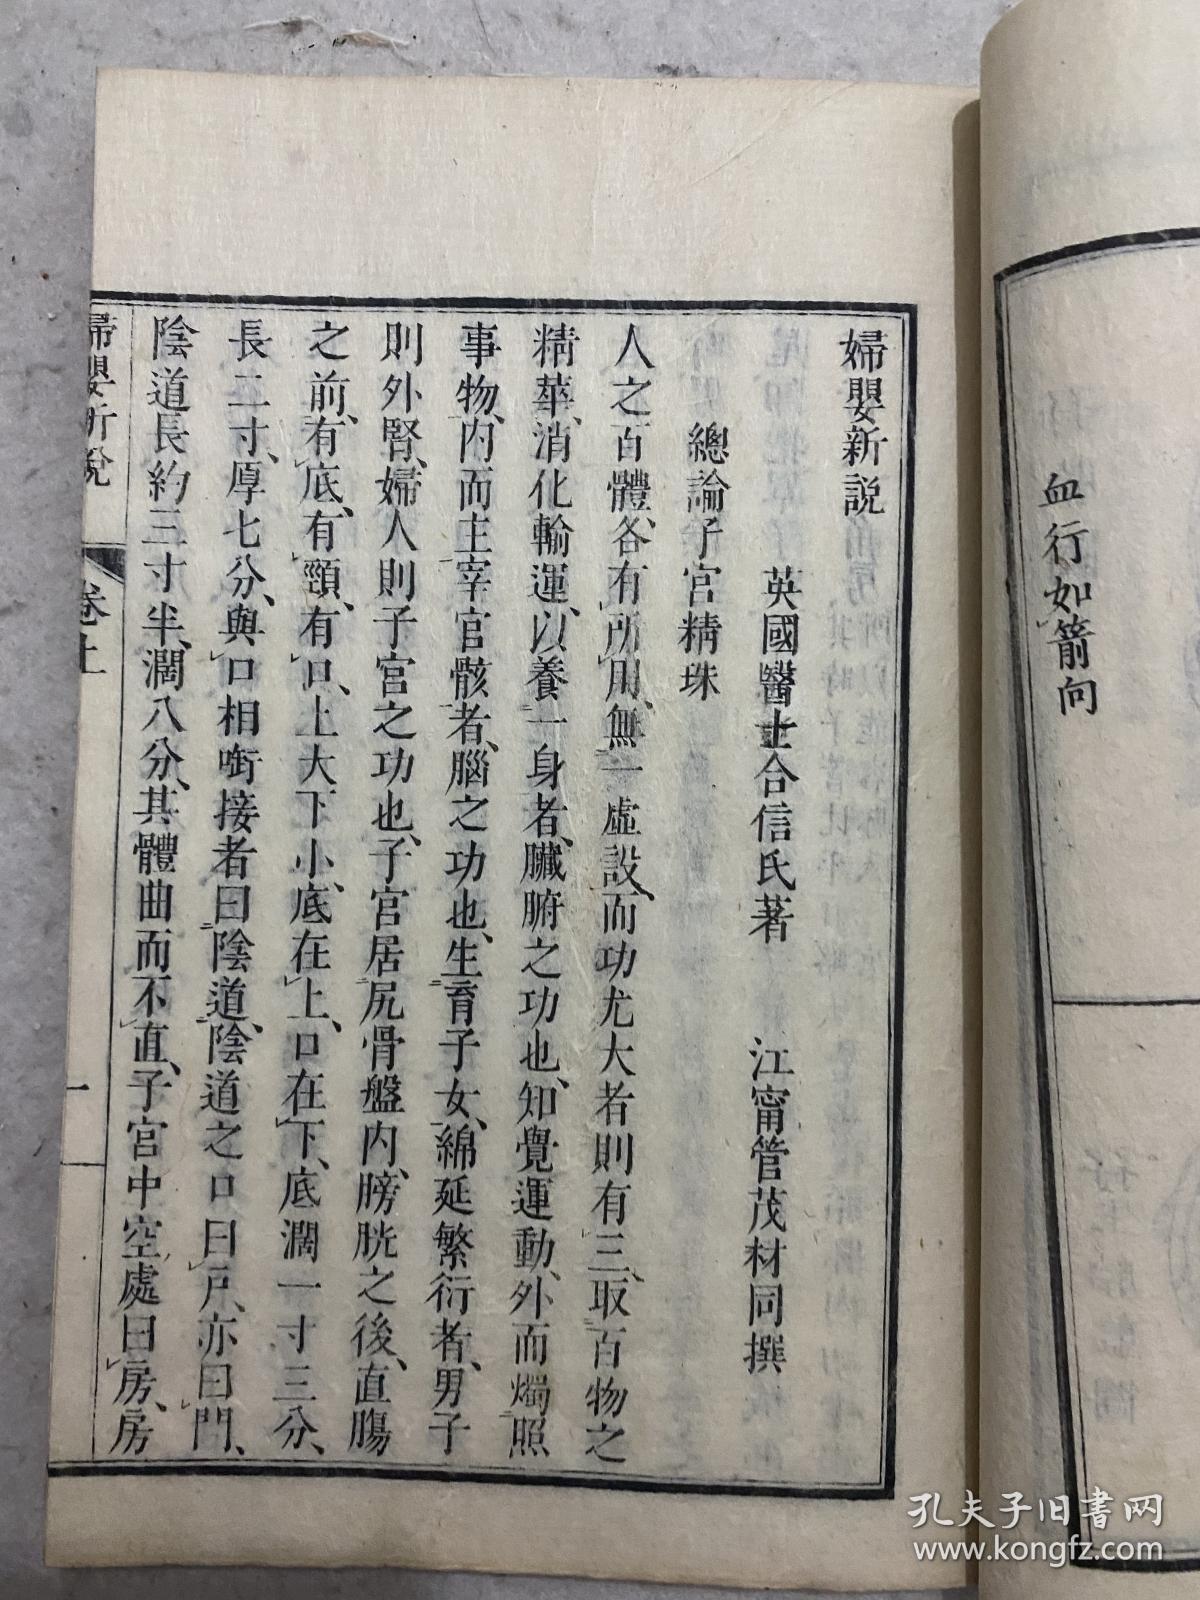 血行如箭向
婦嬰新説
英國醫士合信氏著　江甯管茂材同撰
總論子宮精珠
人之百體、各有所用、無一虛設、而功尤大者則有三、取百物之
精華、消化輸運、以養一身者、臟腑之功也、知覺運動、外而燭照
事物、内而主宰官骸者、腦之功也、生育子女、綿延繁衍者、男子
則外腎、婦人則子宮之功也、子宮居尻骨盤内、膀胱之後、直腸
之前、有底、有頸、有口、上大下小、底在上、口在下、底濶一寸三分、
長二寸、厚七分、與口相啣接者曰陰道、陰道之口曰戸、亦曰門、
陰道長約三寸半、濶八分、其體曲而不直、子宮中空處曰房、房
婦嬰新說
卷上
一
孔夫子旧书网
www.kongfz.com